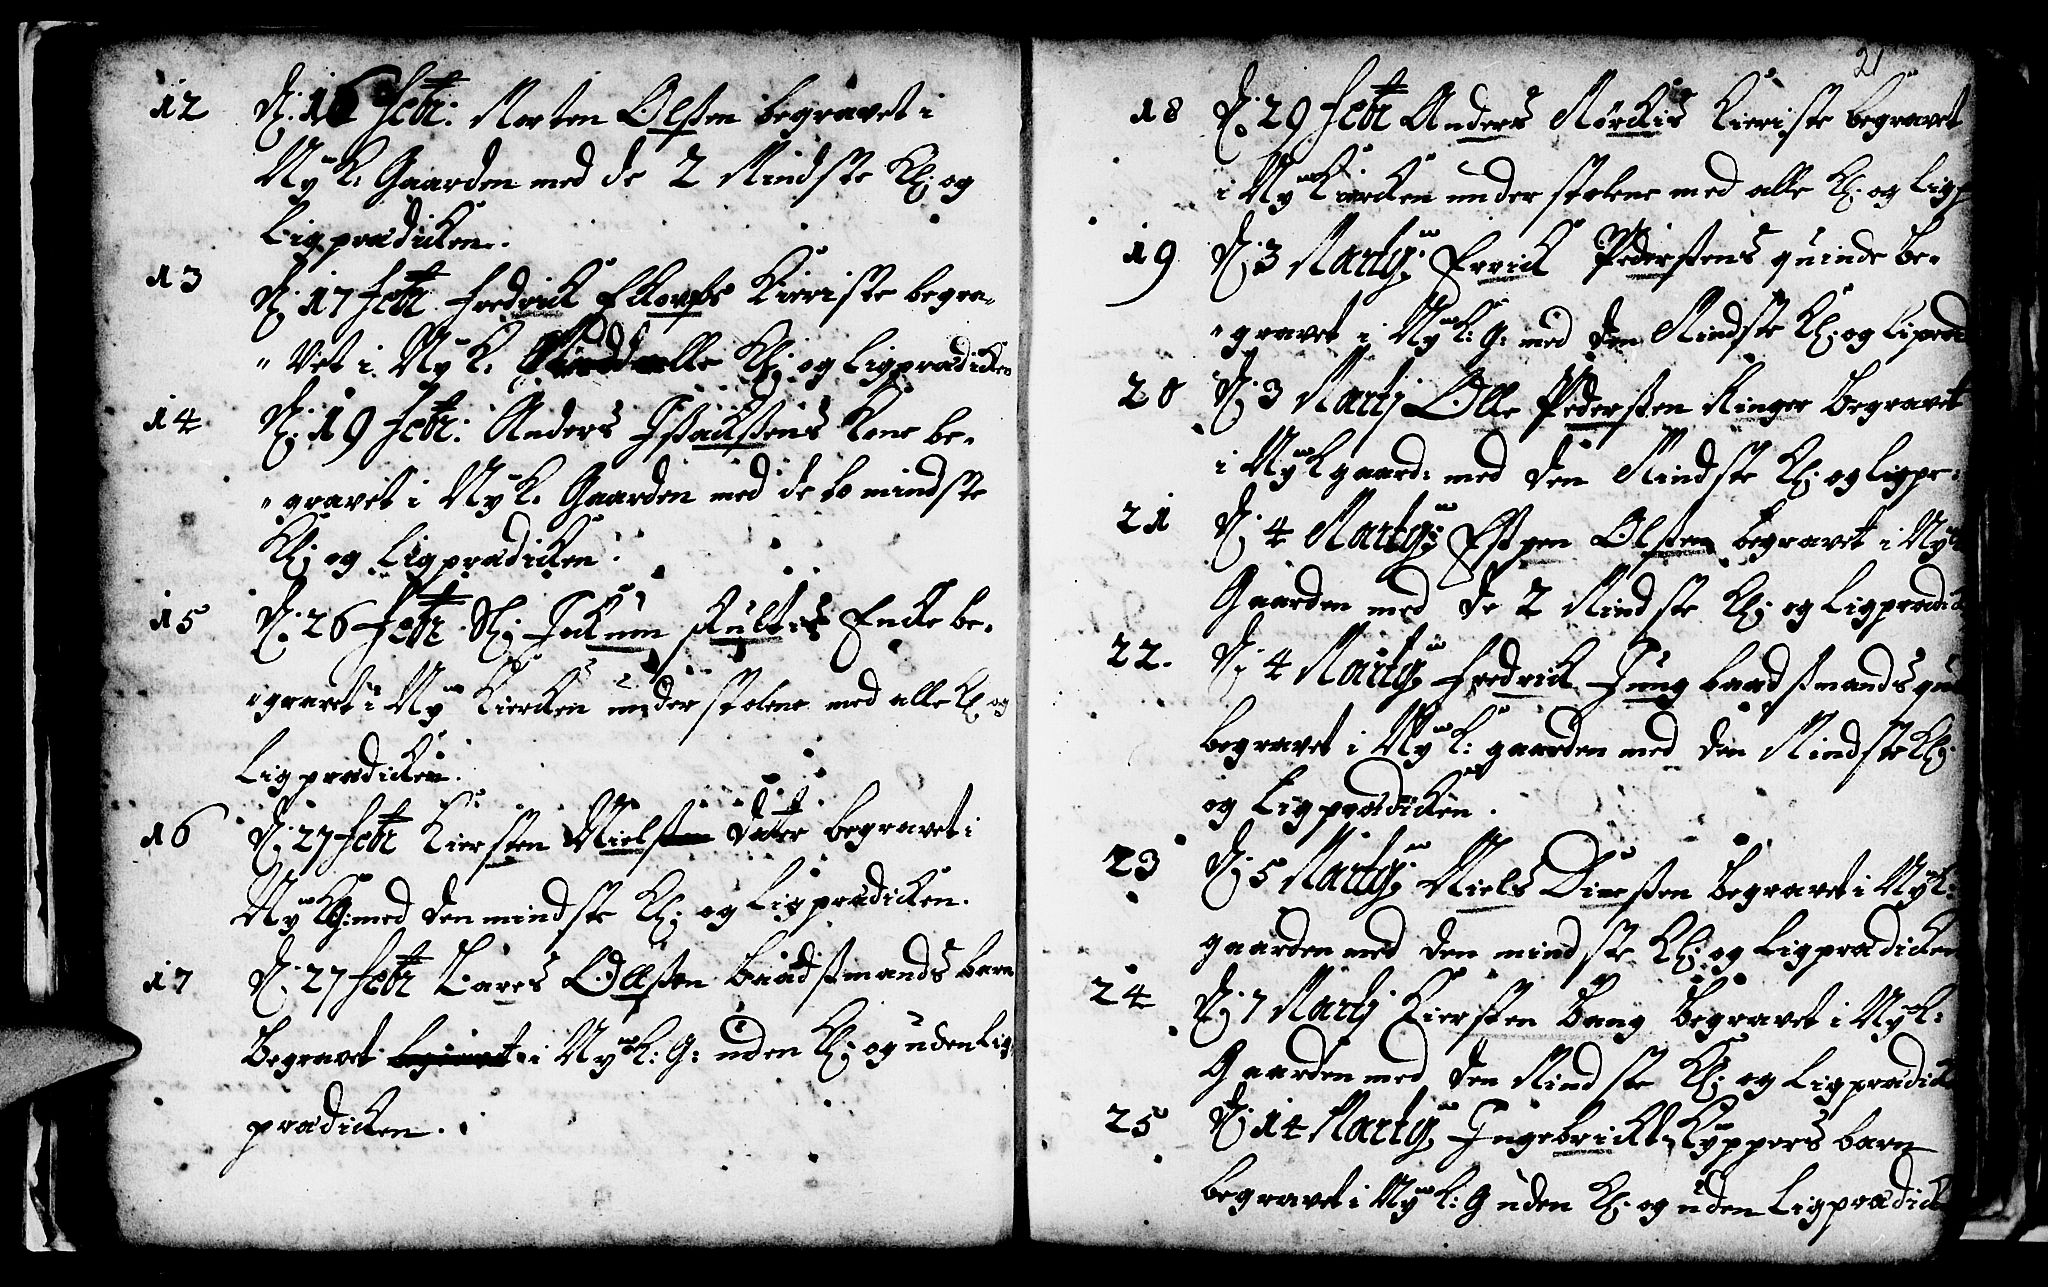 12 D: 16 Febr: Morten Olsen begravet i
Ny K: Gaarden med de 2 Mindste Kl: og
Ligprædicken.
13 D: 17 Febr: Fredrick Ekorfs Kieriste begra-
"vet i Ny K. alle Kl: og Ligprædicken
14 D: 19 Febr: Anders Isacksens Kone be-
"gravet i Ny K. Gaarden med de to mindste
Kl: og Ligprædicken.
15 D: 26 Febr Sl: Jockum Skultis Encke be-
"gravet i Ny Kiercken under stolene med alle Kl. og
Ligprædicken.
16 D: 27 Febr Kiersten Niels Dater begravet i
Ny KG: med den mindste Kl: og Ligprædicken.
17 D: 27 Febr Lares Ollsen Baadsmands barn
Begravet i Ny K: G: uden Kl: og uden Lig
prædicken.
21
18 D: 29 Febr Anders Mørckis Kieriste begravet
i Ny Kiercken under stolene med alle Kl: og Ligp
19 D: 3 Martij: Errick Pedersens quinde Be-
"gravet i Ny K: G: med den Mindste Kl: og Lipræd
20 D: 3 Martij Olle Pedersen Ringer Begravet
i Ny K gaard: med den Mindste Kl: og Ligpr:
21 D: 4 Martij: Espen Olsen begravet i Ny K
Gaarden med de 2 Mindste Kl: og Ligprædick
22. D: 4 Martij Fredrick Jung baadsmands qui
begravet i Ny K: gaarden med den Mindste Kl:
og Ligprædicken.
23 D: 5 Martij Niels Diressen Begravet i Ny K:
gaarden med den mindste Kl: og Ligprædicken
24 D: 7 Martij Kiersten Bang Begravet i Ny K:
Gaarden med den Mindste Kl: og Ligprædick
25 D: 14 Martij Ingebrickt Kyppers barn
begravet i Ny K: G uden Kl: og uden Ligprædick